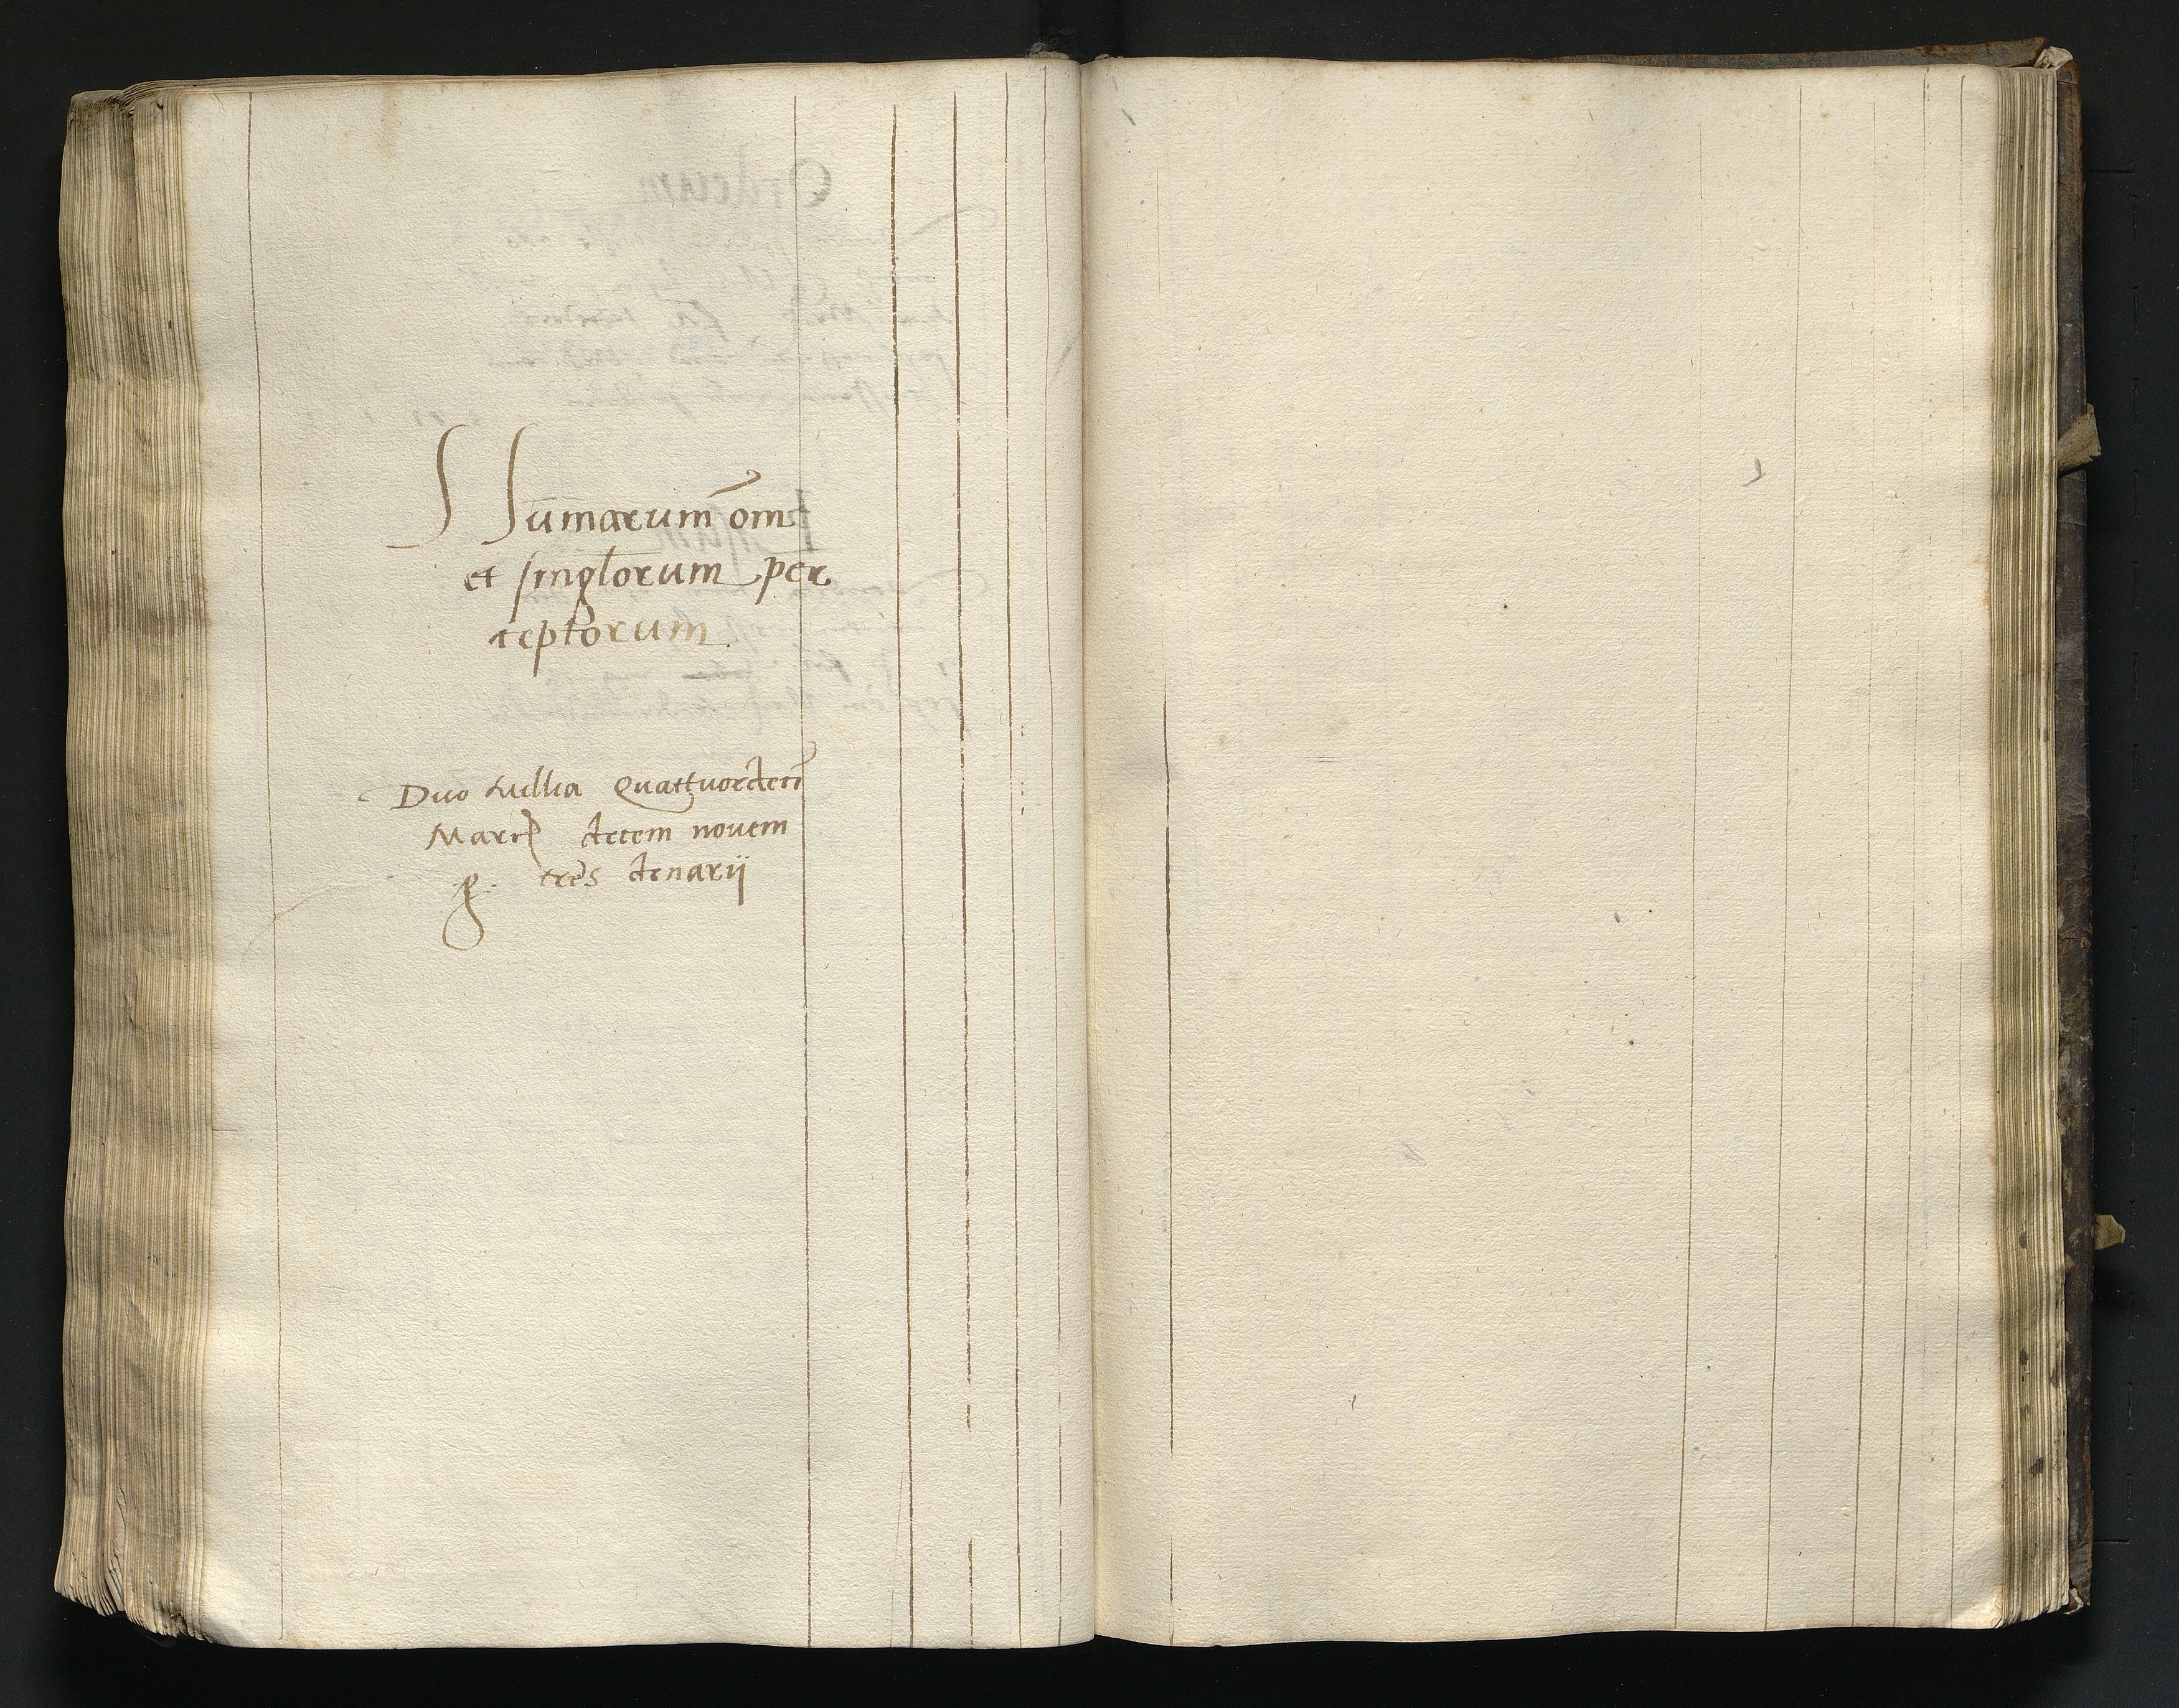 S Sumarum om̄
et singlorum per
ceptorum
Duo Millia Quattuordeci
Marc decem novem
g. tres denarij